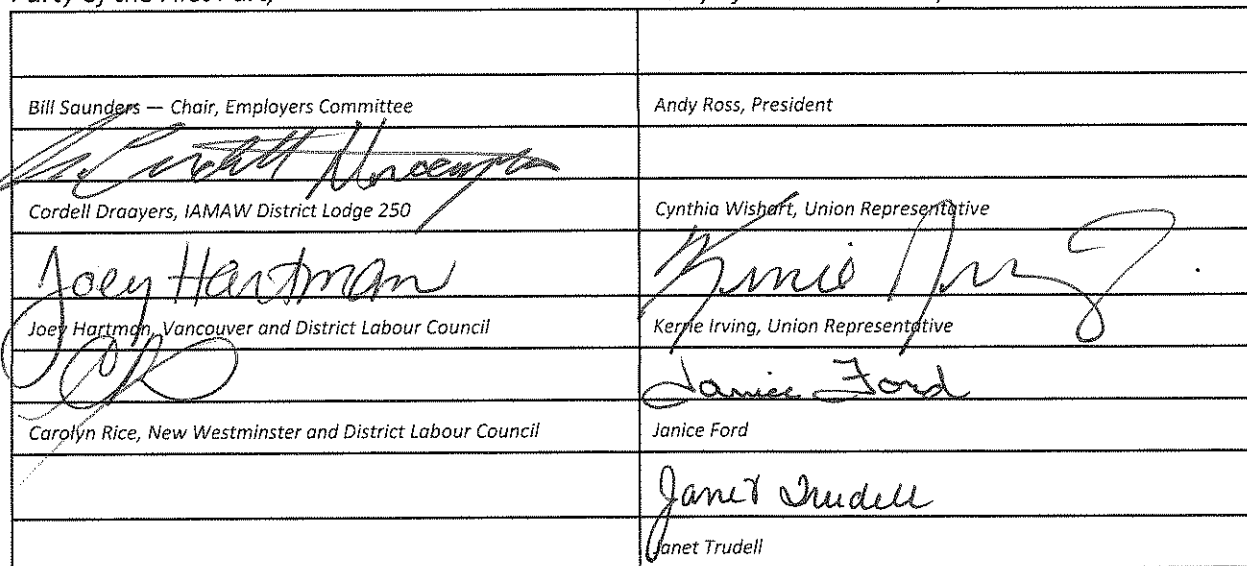 Bill Saunders — Chair, Employers Committee
Andy Ross, President
Cordell Draayers, IAMAW District Lodge 250
Cynthia Wishart, Union Representative
Joey Hartman
Joey Hartman, Vancouver and District Labour Council
Kerrie Irving, Union Representative
Janice Ford
Carolyn Rice, New Westminster and District Labour Council
Janice Ford
Janet Trudell
Janet Trudell